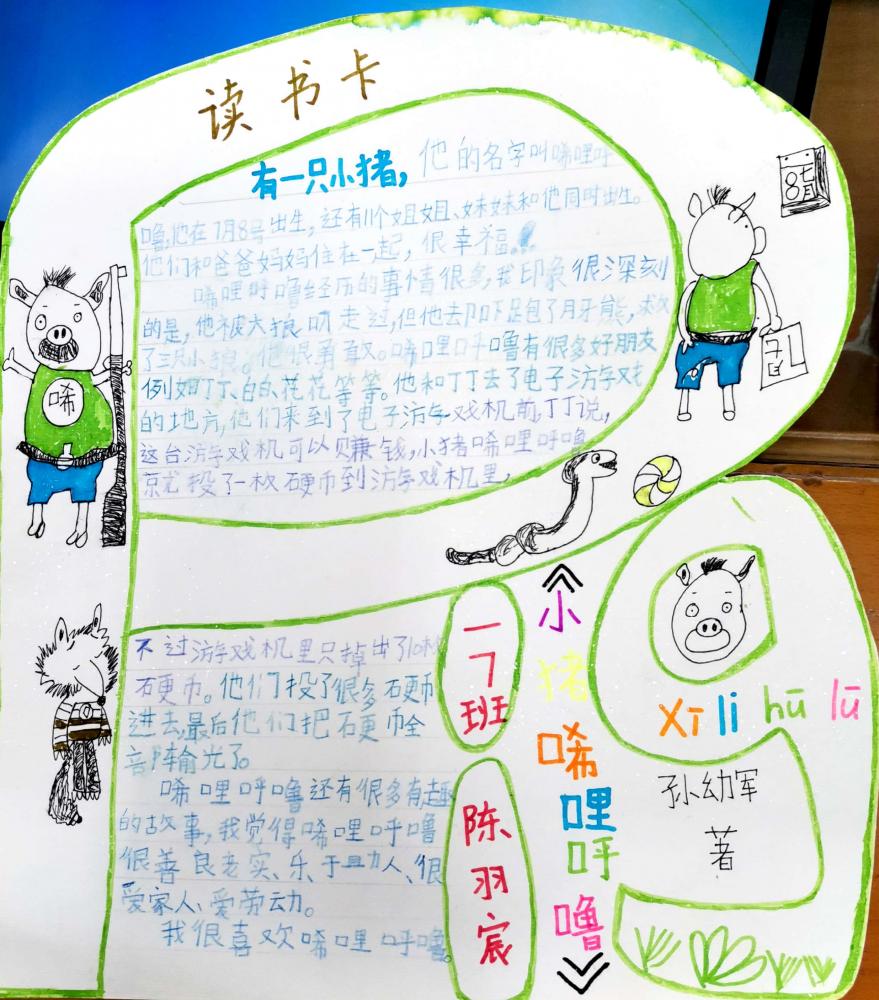 读书卡
有一只小猪，他的名字叫唏哩呼
噜，他在7月8号出生，还有11个姐姐、妹妹和他同时出生。
他们和爸爸妈妈住在一起，很幸福！
唏哩呼噜经历的事情很多，我印象很深刻
的是，他被大狼叼走过，但他去卩下足包了月牙熊，救
了三只小狼。他很勇敢。唏哩呼噜有很多好朋友
例如丁丁、白白、花花等等。他和丁丁去了电子游戏
的地方，他们来到了电子游戏机前，丁丁说，
这台游戏机可以赚钱，小猪唏哩呼噜
就投了一枚硬币到游戏机里，
不过游戏机里只掉出了10枚
硬币。他们投了很多硬币
进去，最后他们把硬币全
部输光了。
唏哩呼噜还有很多有趣
的故事，我觉得唏哩呼噜
很善良老实、乐于助人、很
爱家人、爱劳动。
我很喜欢唏哩呼噜。
唏
8
七月
一7班
陈羽宸
《小猪唏哩呼噜》
xī li hū lū
孙幼军
著